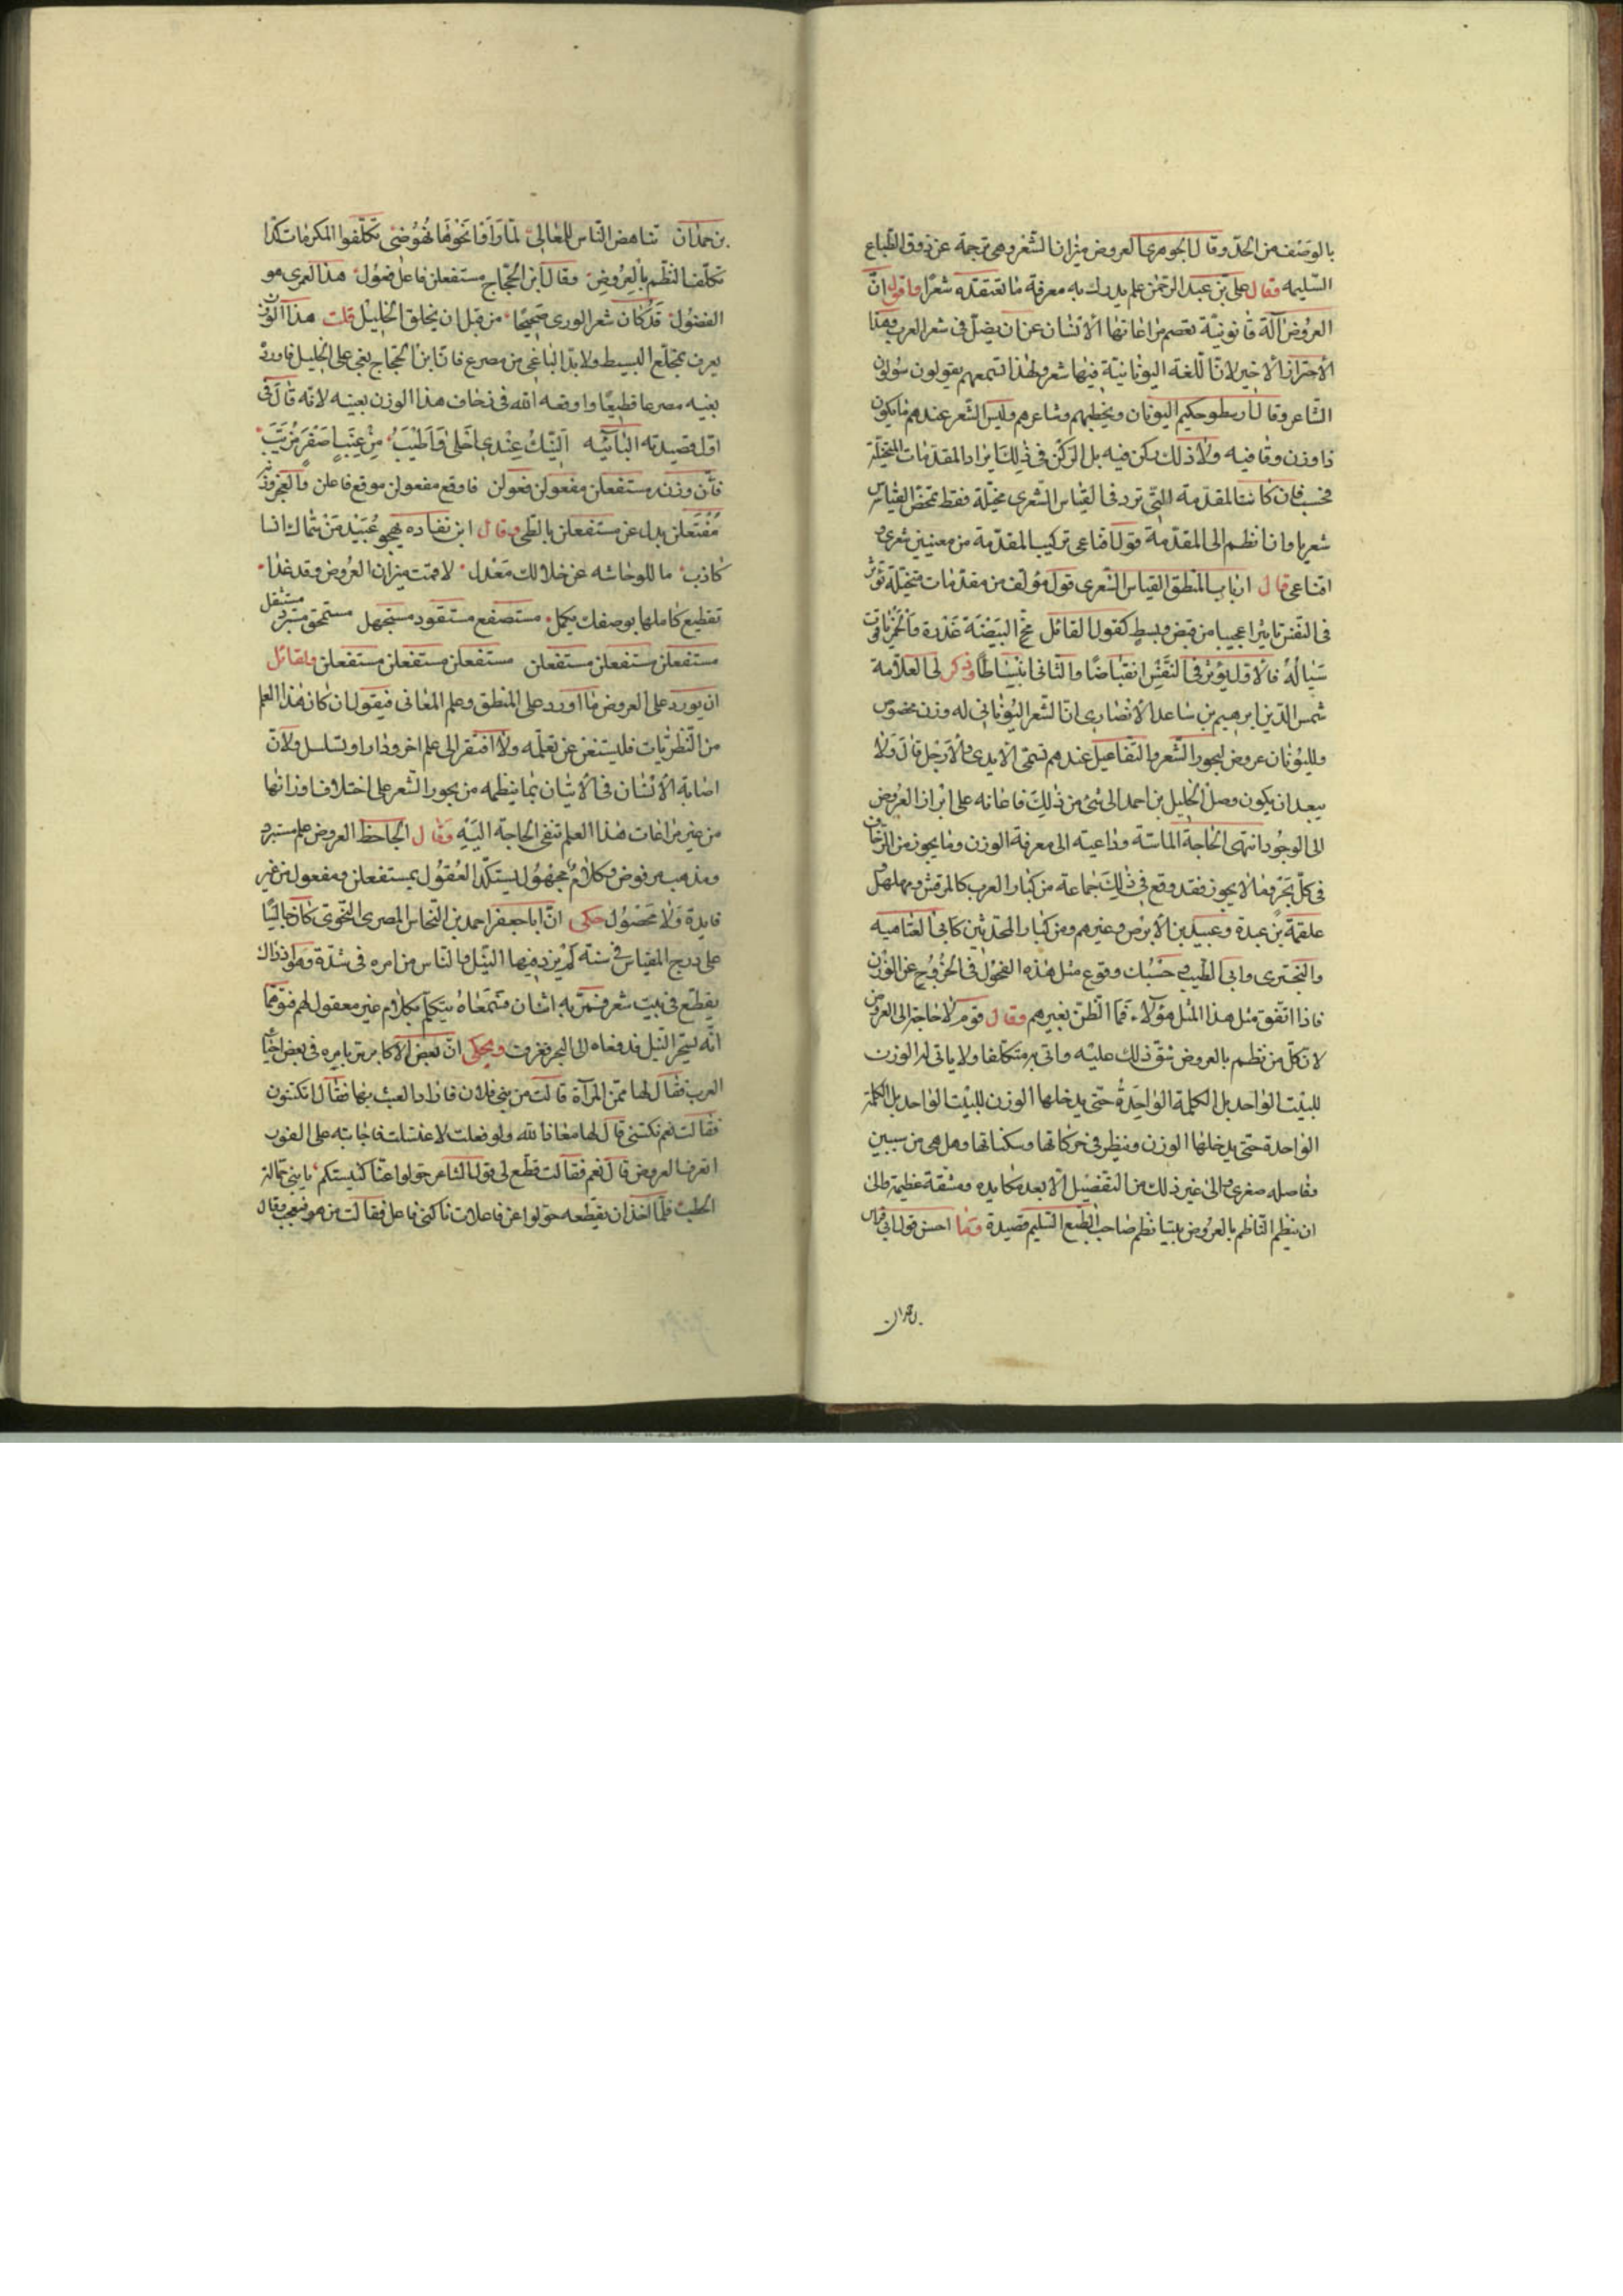 بالوصف من الحدّ وقال الجوهري العروض ميزان الشعر وهي ترجمة عن ذوق الطباع
السّليمه وقال علي بن عبد الرحمن علم يدرك به معرفة ما تعتقده شعرًا واقول انّ
العروض آلة قانونيّة تعصم مراعاتها الانسان عن ان يضلّ في شعر العرب وهذا
الاحتراز الاخير لانّ اللّغة اليونانيّة فيها شعر ولهذا تسمعهم يقولون سولون
الشاعر وقال ارسطو حكيم اليونان وخطيبهم وشاعرهم وليس الشّعر عندهم ما يكون
ذا وزن وقافيه ولا ذلك ركن فيه بل الركن في ذلك ايراد المقدّمات المخيّلة
فحسب فان كانت المقدّمة التي ترد في القياس الشعري مخيّلة فقط تمحّض القياس
شعريا وان انظم الى المقدّمة قول اقناعي تركيب المقدّمة من معنيين شعري و
اقناعي قال ارباب المنطق القياس الشّعري قول مؤلف من مقدّمات متخيّلة تؤثر
في النفس تاثيرا عجيبا من قبض وبسط كقول القائل مخ البيضة عذرة والخمر ياقوت
سيّاله فالاوّل يؤثر في النّفس انقباضًا والثاني انبساطًا وذكر لي العلّامة
شمس الدّين ابرهيم بن ساعد الانصاري انّ الشّعر اليوناني له وزن مخصوص
ولليونان عروض لبحور الشّعر والتّفاعيل عندهم تسمّى الايدي والارجل قال ولا
يبعد ان يكون وصل الخليل بن احمد الى شئ من ذلك فاعانه على ابراز العروض
الى الوجود انتهى الحاجة الماسّة وداعيته الى معرفة الوزن وما يجوز من الزّحاف
في كلّ بحر وما لا يجوز فقد وقع في ذلك جماعة من كبار العرب كالمرقش ومهلهل و
علقمة بن عبدة وعبيد بن الابرص وغيرهم ومن كبار المحدثين كابي العتاهية
والبحتري وابي الطّيب وحسبك وقوع مثل هذه الفحول في الخروج عن الوزن
فاذا اتّفق مثل هذا المثل هؤلاء فما الظن بغيرهم وقال قوم لا حاجة الى العروض
لانّ كلّ من نظم بالعروض شقّ ذلك عليه واتى به متكلّفا ولا ياتي له الوزن
للبيت الواحد بل الكلمة الواحدة حتى يدخلها الوزن للبيت الواحد بل الكلمة
الواحدة حتى يدخلها الوزن وينظر في حركاتها وسكناتها وهل هي من سببين
وفاصله صغرى والى غير ذلك من التفصيل الا بعد مكايده ومشقة عظيمة والى
ان ينظم النّاظم بالعروض بيتا نظم صاحب الطّبع السّليم قصيدة وما احسن قول ابي فراس
بن حمدان
بن حمدان تناهض النّاس للمعالي لمّا رأوا نحوها نهوضي تكلّفوا المكرمات كدّا
تكلّف النظم بالعروض وقال ابن الحجّاج مستفعلن فاعل فعول هذا لعمري هو
الفضول قد كان شعر الورى صحيحًا من قبل ان يخلق الخليل قلت هذا الوزن
يعرف بمخلّع البسيط ولا بدّ للباغي من مصرع فانّ ابن الحجّاج بغى على الخليل فاورد
بغيه مصرعا فظيعًا واوقعه الله في زحاف هذا الوزن بعينه لانّه قال في
اوّل قصيدته البائيّه النّيك عندي احلى واطيب من عنب اصفر مزيّب
فانّ وزنه مستفعلن مفعولن فعولن فاوقع مفعولن موقع فاعلن والعجز وزنه
مفتعلن بدل عن مستفعلن بالطّي وقال ابن نفاده يهجو عبيد من شماك انسا
كاذب ما للوحاشه عن خلالك معدل لا قمت ميزان العروض وقد غدا
تقطيع كاملها بوصفك يكمل مستصفع مستقود مستجهل مستحمق مستبرد مستثقل
مستفعلن مستفعلن مستفعلن مستفعلن مستفعلن مستفعلن ولقائل
ان يورد على العروض ما اورد على المنطق وعلم المعاني فيقول ان كان هذا العلم
من النّظريّات فليستغن عن تعلّمه والّا افتقر الى علم اخر ودار او تسلسل ولانّ
اصابة الانسان في الاتيان بما ينظمه من بحور الشّعر على اختلاف اوزانها
من غير مراعات هذا العلم تنفي الحاجة اليه وقال الجاحظ العروض علم مستبرد
ومذهب مرفوض وكلام مجهول يستكدّ العقول بمستفعلن ومفعول من غير
فايدة ولا محصول حكي انّ ابا جعفر احمد بن النّحاس المصري النّحوي كان جالسًا
على درج المقياس في سنة لم يزد فيها النّيل والنّاس من امره في شدّة وهو اذ ذاك
يقطّع في بيت شعر فمرّ به اثنان فسمعاه يتكلّم بكلام غير معقول لهم فتوهّما
انّه يسحر النّيل فدفعاه الى البحر فغرق ويحكى انّ بعض الاكابر مرّ بامرة في بعض احياء
العرب فقال لها ممّن المرآة قالت من بني فلان فاراد العبث بها فقال اتكتنون
فقالت نعم نكتني قال لها معاذ الله ولو فعلت لاغتسلت فاجابته على الفور
اتعرف العروض قال نعم فقالت قطّع لي قول الشاعر حولوا عنّا كنيستكم يا بني حمّالة
الحطب فلمّا اخذ ان يقطّعه حولوا عن فاعلات ناكني فاعل فقالت من هو فتعجّب وقال